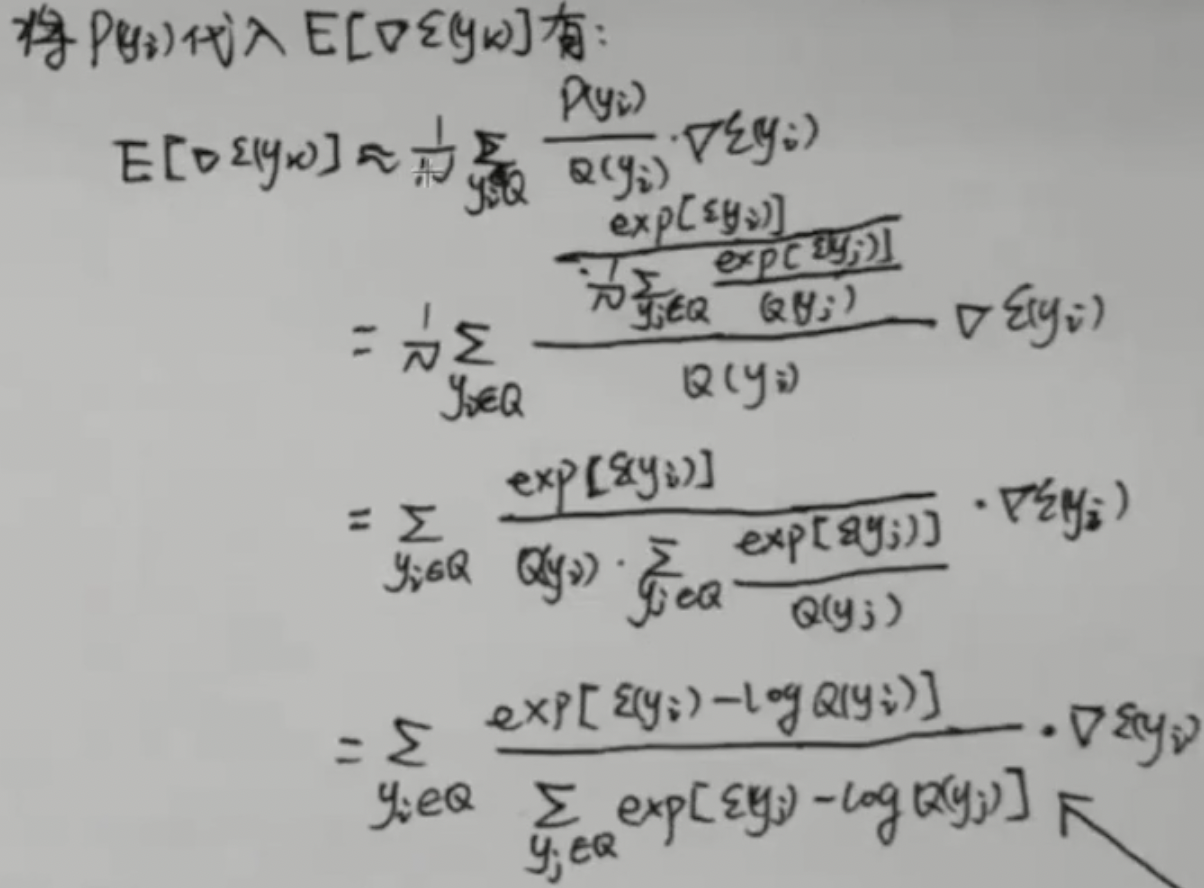 将 P(yᵢ) 代入 E[∇ℰ(yₖ)] 有:
E[∇ℰ(yₖ)] ≈ 1/N ∑_{yᵢ∈Q} P(yᵢ)/Q(yᵢ) · ∇ℰ(yᵢ)
= 1/N ∑_{yᵢ∈Q} (exp[ℰ(yᵢ)] / (1/N ∑_{yⱼ∈Q} exp[ℰ(yⱼ)]/Q(yⱼ))) / Q(yᵢ) ∇ℰ(yᵢ)
= ∑_{yᵢ∈Q} exp[ℰ(yᵢ)] / (Q(yᵢ) · ∑_{yⱼ∈Q} exp[ℰ(yⱼ)]/Q(yⱼ)) · ∇ℰ(yᵢ)
= ∑_{yᵢ∈Q} exp[ℰ(yᵢ) - log Q(yᵢ)] / ∑_{yⱼ∈Q} exp[ℰ(yⱼ) - log Q(yⱼ)] · ∇ℰ(yᵢ)